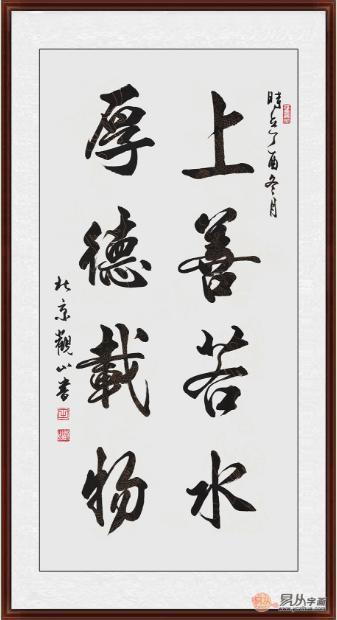 時在丁酉冬月
上善若水
厚德載物
北京觀山書
易从字画